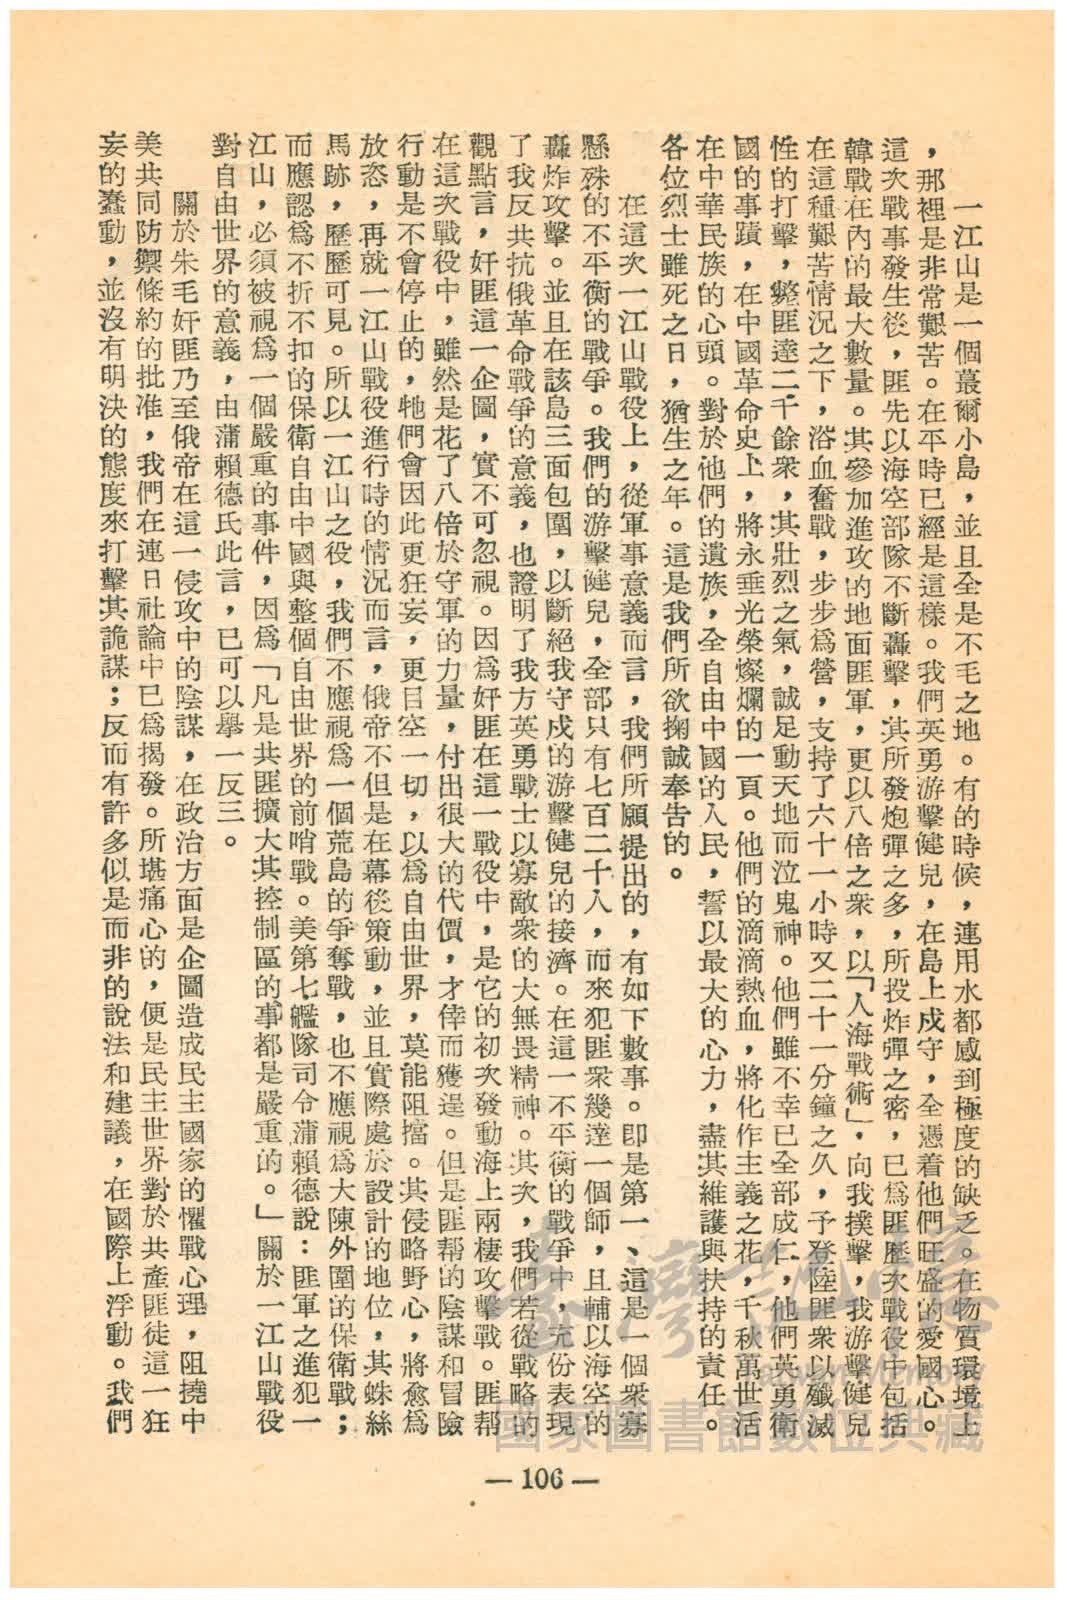 一江山是一個蕞爾小島，並且全是不毛之地。有的時候，連用水都感到極度的缺乏。在物質環境上
，那裡是非常艱苦。在平時已經是這樣。我們英勇游擊健兒，在島上戍守，全憑着他們旺盛的愛國心。
這次戰事發生後，匪先以海空部隊不斷轟擊，其所發炮彈之多，所投炸彈之密，已為匪歷次戰役中包括
韓戰在內的最大數量。其參加進攻的地面匪軍，更以八倍之衆，以「人海戰術」，向我撲擊，我游擊健兒
在這種艱苦情況之下，浴血奮戰，步步為營，支持了六十一小時又二十一分鐘之久，予登陸匪衆以殲滅
性的打擊，斃匪達二千餘衆，其壯烈之氣，誠足動天地而泣鬼神。他們雖不幸已全部成仁，他們英勇衛
國的事蹟，在中國革命史上，將永垂光榮燦爛的一頁。他們的滴滴熱血，將化作主義之花，千秋萬世活
在中華民族的心頭。對於他們的遺族，全自由中國的人民，誓以最大的心力，盡其維護與扶持的責任。
各位烈士雖死之日，猶生之年。這是我們所欲掬誠奉告的。
在這次一江山戰役上，從軍事意義而言，我們所願提出的，有如下數事。即是第一、這是一個衆寡
懸殊的不平衡的戰爭。我們的游擊健兒，全部只有七百二十人，而來犯匪衆幾達一個師，且輔以海空的
轟炸攻擊。並且在該島三面包圍，以斷絕我守戍的游擊健兒的接濟。在這一不平衡的戰爭中，充份表現
了我反共抗俄革命戰爭的意義，也證明了我方英勇戰士以寡敵衆的大無畏精神。其次，我們若從戰略的
觀點言，奸匪這一企圖，實不可忽視。因為奸匪在這一戰役中，是它的初次發動海上兩棲攻擊戰。匪幫
在這次戰役中，雖然是花了八倍於守軍的力量，付出很大的代價，才倖而獲逞。但是匪幫的陰謀和冒險
行動是不會停止的，牠們會因此更狂妄，更目空一切，以為自由世界，莫能阻擋。其侵略野心，將愈為
放恣，再就一江山戰役進行時的情況而言，俄帝不但是在幕後策動，並且實際處於設計的地位，其蛛絲
馬跡，歷歷可見。所以一江山之役，我們不應視為一個荒島的爭奪戰，也不應視為大陳外圍的保衛戰；
而應認為不折不扣的保衛自由中國與整個自由世界的前哨戰。美第七艦隊司令蒲賴德說：匪軍之進犯一
江山，必須被視為一個嚴重的事件，因為「凡是共匪擴大其控制區的事都是嚴重的。」關於一江山戰役
對自由世界的意義，由蒲賴德氏此言，已可以舉一反三。
關於朱毛奸匪乃至俄帝在這一侵攻中的陰謀，在政治方面是企圖造成民主國家的懼戰心理，阻撓中
美共同防禦條約的批准，我們在連日社論中已為揭發。所堪痛心的，便是民主世界對於共產匪徒這一狂
妄的蠢動，並沒有明決的態度來打擊其詭謀；反而有許多似是而非的說法和建議，在國際上浮動。我們
— 106 —
臺灣記憶
Taiwan Memory
國家圖書館數位典藏